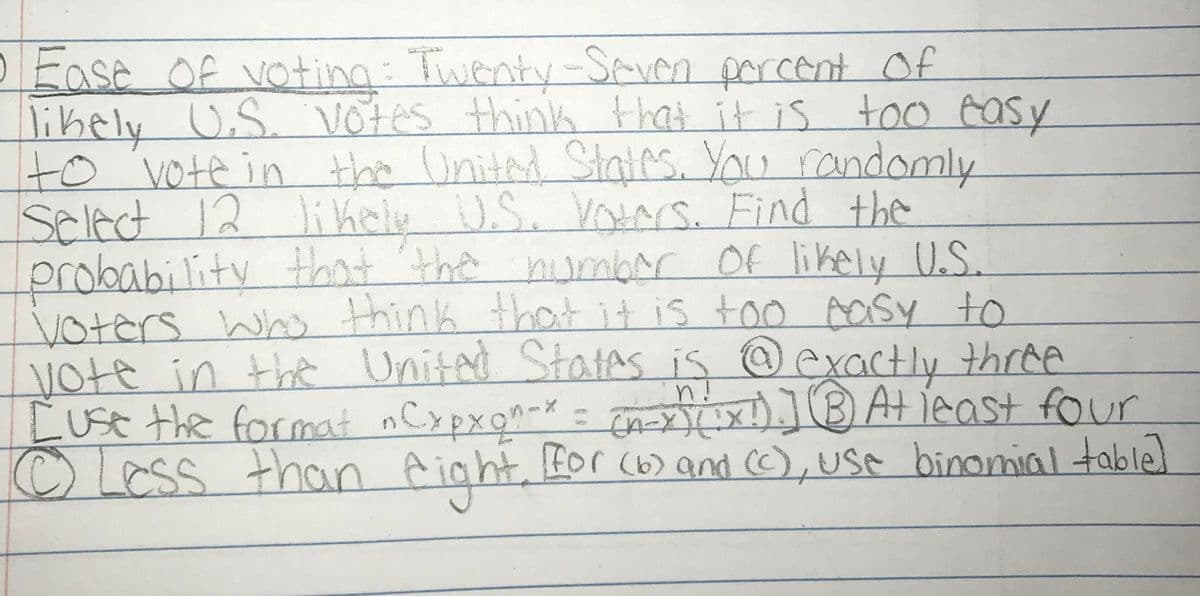 Ease of voting: Twenty-Seven percent of
likely U.S. votes think that it is too easy
to vote in the United States. You randomly
Select 12 likely U.S. Voters. Find the
probability that the number of likely U.S.
Voters who think that it is too easy to
vote in the United States is ⓐ exactly three
[use the format nCxpxqn-x = n!/(n-x)(!x!).] Ⓑ At least four
Ⓒ Less than eight. [For (b) and (c), use binomial table]